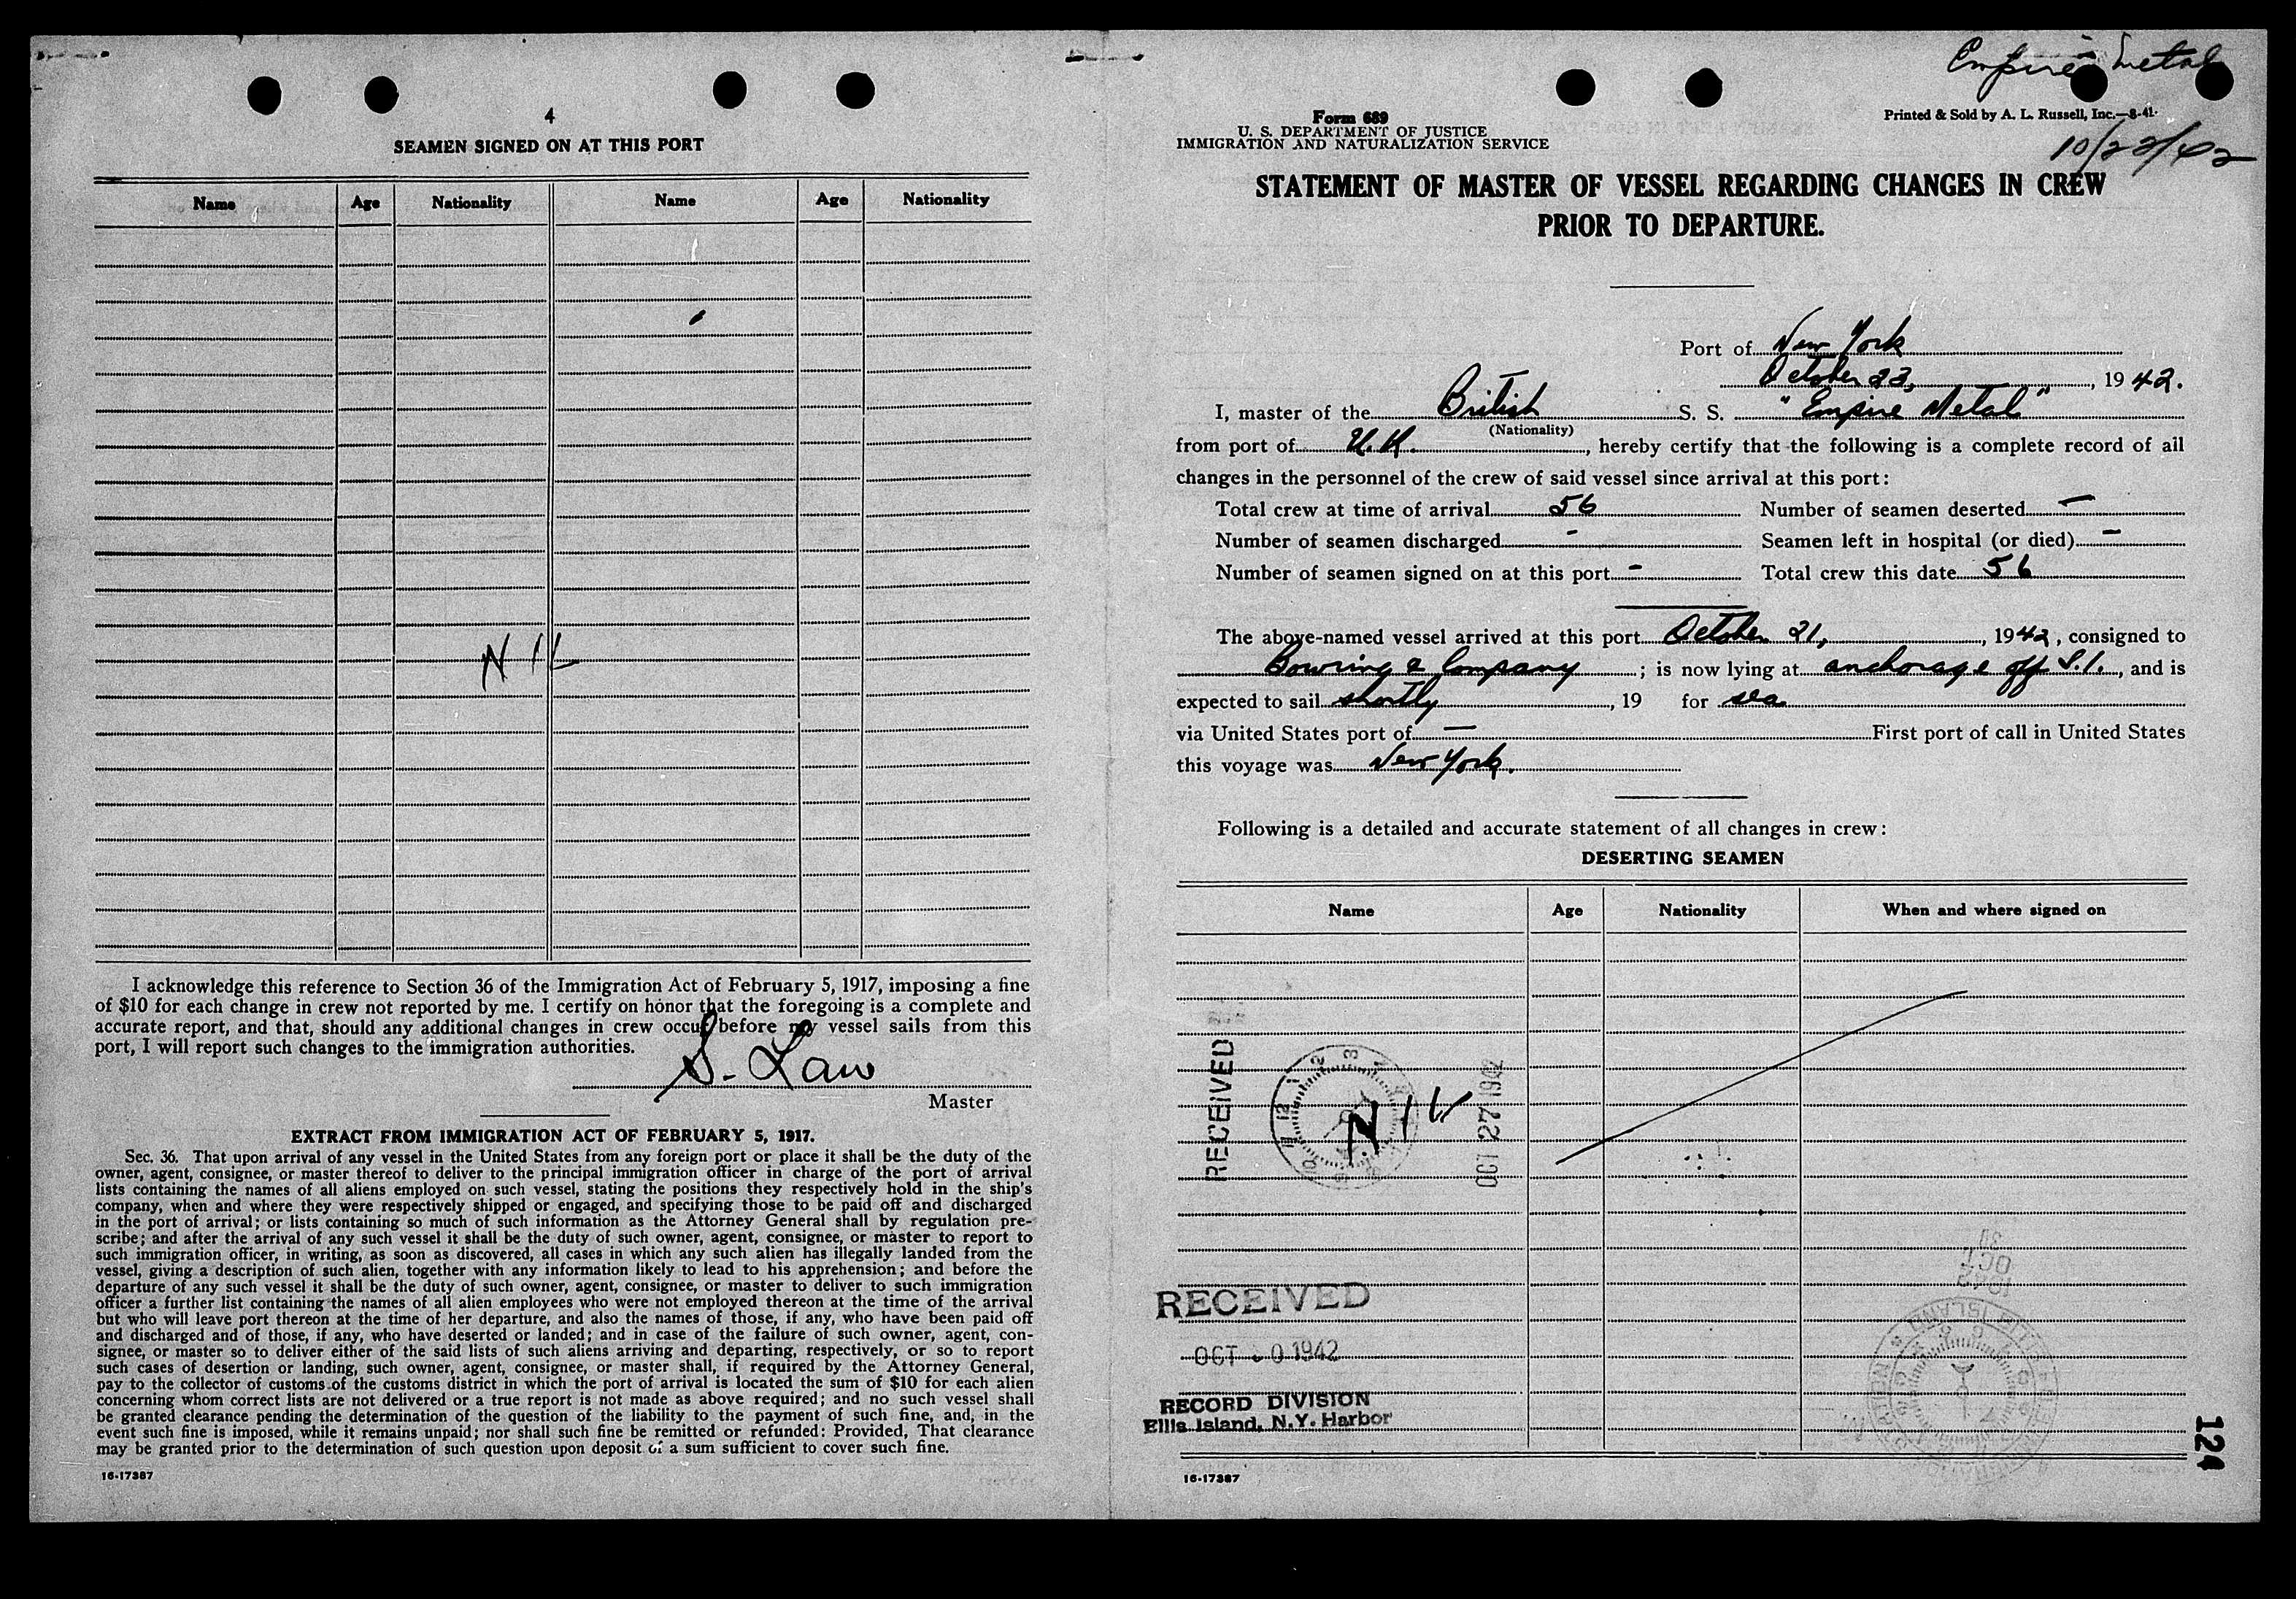 4
SEAMEN SIGNED ON AT THIS PORT
Name Age Nationality Name Age Nationality
NIL
I acknowledge this reference to Section 36 of the Immigration Act of February 5, 1917, imposing a fine
of $10 for each change in crew not reported by me. I certify on honor that the foregoing is a complete and
accurate report, and that, should any additional changes in crew occur before my vessel sails from this
port, I will report such changes to the immigration authorities.
S. Law
Master
EXTRACT FROM IMMIGRATION ACT OF FEBRUARY 5, 1917.
Sec. 36. That upon arrival of any vessel in the United States from any foreign port or place it shall be the duty of the
owner, agent, consignee, or master thereof to deliver to the principal immigration officer in charge of the port of arrival
lists containing the names of all aliens employed on such vessel, stating the positions they respectively hold in the ship's
company, when and where they were respectively shipped or engaged, and specifying those to be paid off and discharged
in the port of arrival; or lists containing so much of such information as the Attorney General shall by regulation pre-
scribe; and after the arrival of any such vessel it shall be the duty of such owner, agent, consignee, or master to report to
such immigration officer, in writing, as soon as discovered, all cases in which any such alien has illegally landed from the
vessel, giving a description of such alien, together with any information likely to lead to his apprehension; and before the
departure of any such vessel it shall be the duty of such owner, agent, consignee, or master to deliver to such immigration
officer a further list containing the names of all alien employees who were not employed thereon at the time of the arrival
but who will leave port thereon at the time of her departure, and also the names of those, if any, who have been paid off
and discharged and of those, if any, who have deserted or landed; and in case of the failure of such owner, agent, con-
signee, or master so to deliver either of the said lists of such aliens arriving and departing, respectively, or so to report
such cases of desertion or landing, such owner, agent, consignee, or master shall, if required by the Attorney General,
pay to the collector of customs of the customs district in which the port of arrival is located the sum of $10 for each alien
concerning whom correct lists are not delivered or a true report is not made as above required; and no such vessel shall
be granted clearance pending the determination of the question of the liability to the payment of such fine, and, in the
event such fine is imposed, while it remains unpaid; nor shall such fine be remitted or refunded: Provided, That clearance
may be granted prior to the determination of such question upon deposit of a sum sufficient to cover such fine.
16-17387
Empire Metal
Form 689
U. S. DEPARTMENT OF JUSTICE
IMMIGRATION AND NATURALIZATION SERVICE
Printed & Sold by A. L. Russell, Inc.—8-41
10/23/42
STATEMENT OF MASTER OF VESSEL REGARDING CHANGES IN CREW
PRIOR TO DEPARTURE.
Port of New York
October 23, 1942.
I, master of the British S. S. "Empire Metal"
(Nationality)
from port of U.K., hereby certify that the following is a complete record of all
changes in the personnel of the crew of said vessel since arrival at this port:
Total crew at time of arrival 56 Number of seamen deserted —
Number of seamen discharged - Seamen left in hospital (or died) —
Number of seamen signed on at this port - Total crew this date 56
The above-named vessel arrived at this port October 21, 1942, consigned to
Bowring & Company; is now lying at anchorage off S.I., and is
expected to sail shortly, 19 for sea
via United States port of — First port of call in United States
this voyage was New York.
Following is a detailed and accurate statement of all changes in crew:
DESERTING SEAMEN
Name Age Nationality When and where signed on
RECEIVED
NIL
OCT 27 1942
OCT
1942
RECEIVED
OCT 0 1942
RECORD DIVISION
Ellis Island, N.Y. Harbor
124
16-17387